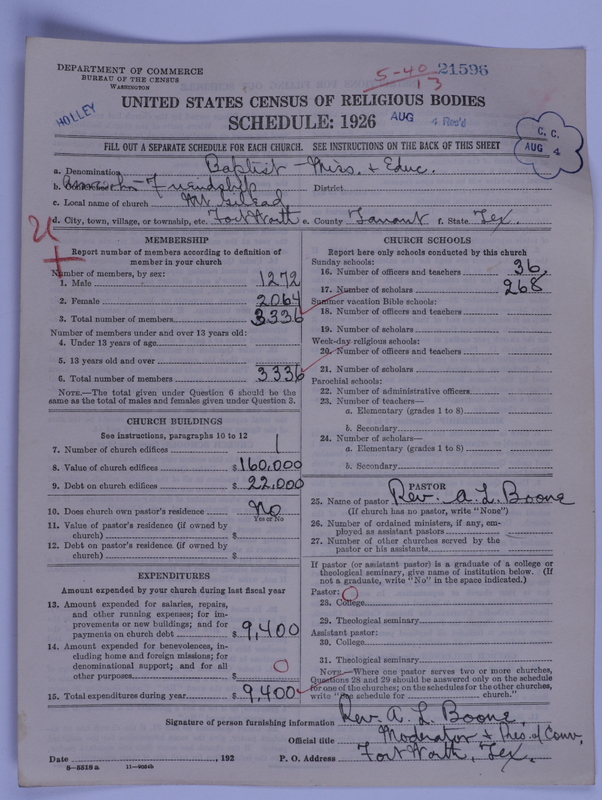 DEPARTMENT OF COMMERCE
BUREAU OF THE CENSUS
WASHINGTON
5-40 21596
13
HOLLEY
UNITED STATES CENSUS OF RELIGIOUS BODIES
SCHEDULE: 1926
AUG 4 Rec'd
C. C.
AUG 4
FILL OUT A SEPARATE SCHEDULE FOR EACH CHURCH. SEE INSTRUCTIONS ON THE BACK OF THIS SHEET
a. Denomination Baptist - Miss. & Educ.
b. Friendship District
c. Local name of church Mt. Gilead
d. City, town, village, or township, etc. Fort Worth e. County Tarrant f. State Tex.
MEMBERSHIP
Report number of members according to definition of
member in your church
Number of members, by sex:
1. Male 1272
2. Female 2064
3. Total number of members 3336
Number of members under and over 13 years old:
4. Under 13 years of age
5. 13 years old and over
6. Total number of members 3336
NOTE.—The total given under Question 6 should be the
same as the total of males and females given under Question 3.
CHURCH BUILDINGS
See instructions, paragraphs 10 to 12
7. Number of church edifices 1
8. Value of church edifices $160,000
9. Debt on church edifices $22,000
10. Does church own pastor's residence No
Yes or No
11. Value of pastor's residence (if owned by
church) $
12. Debt on pastor's residence (if owned by
church) $
EXPENDITURES
Amount expended by your church during last fiscal year
13. Amount expended for salaries, repairs,
and other running expenses; for im-
provements or new buildings; and for
payments on church debt $9,400
14. Amount expended for benevolences, in-
cluding home and foreign missions; for
denominational support; and for all
other purposes $ 0
15. Total expenditures during year $9,400
CHURCH SCHOOLS
Report here only schools conducted by this church
Sunday schools:
16. Number of officers and teachers 36
17. Number of scholars 268
Summer vacation Bible schools:
18. Number of officers and teachers
19. Number of scholars
Week-day religious schools:
20. Number of officers and teachers
21. Number of scholars
Parochial schools:
22. Number of administrative officers
23. Number of teachers—
a. Elementary (grades 1 to 8)
b. Secondary
24. Number of scholars—
a. Elementary (grades 1 to 8)
b. Secondary
PASTOR
25. Name of pastor Rev. A. L. Boone
(If church has no pastor, write "None")
26. Number of ordained ministers, if any, em-
ployed as assistant pastors
27. Number of other churches served by the
pastor or his assistants
If pastor (or assistant pastor) is a graduate of a college or
theological seminary, give name of institution below. (If
not a graduate, write "No" in the space indicated.)
Pastor: 0
28. College
29. Theological seminary
Assistant pastor:
30. College
31. Theological seminary
NOTE.—Where pastor serves two or more churches,
Questions 28 and 29 should be answered only on the schedule
for one of the churches; on the schedules for the other churches,
write "See schedule for church."
Signature of person furnishing information Rev. A. L. Boone,
Official title Moderator & Pres. of Conv.
Date , 192 P. O. Address Fort Worth, Tex.
8-8318 a